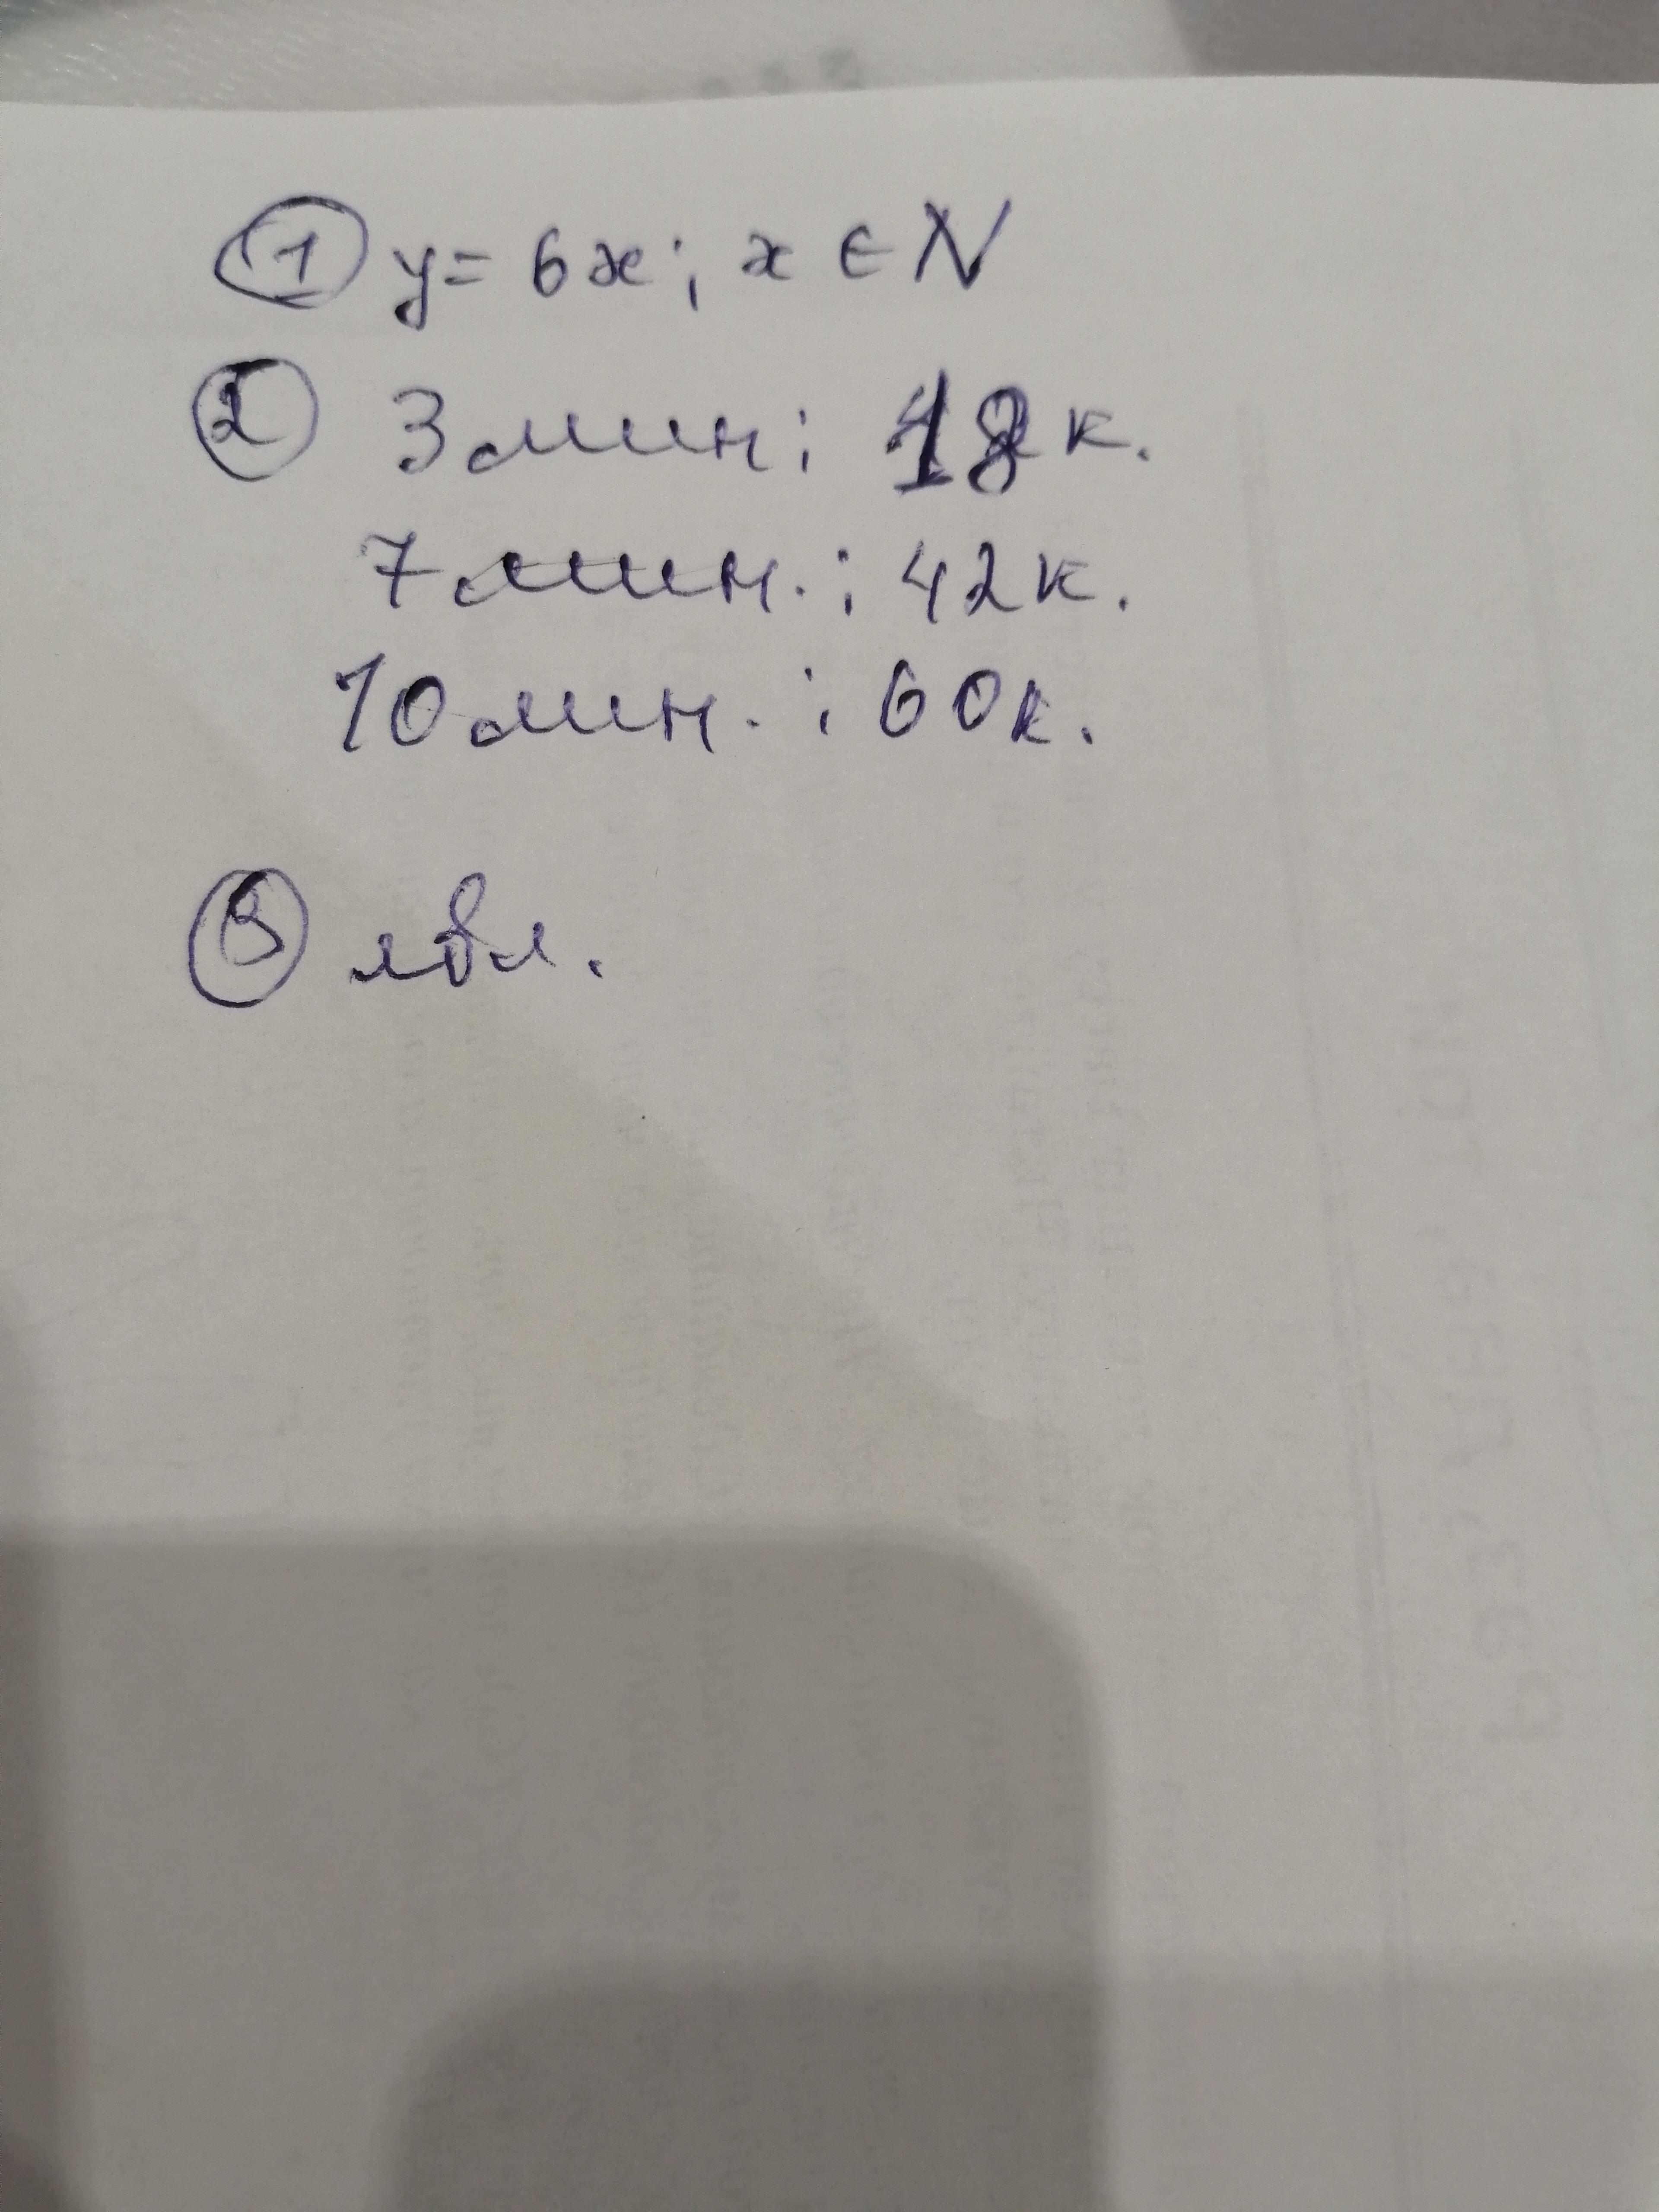 ① y = 6x; x ∈ N
② 3 мин: 18 к.
7 мин.: 42 к.
10 мин.: 60 к.
③ явл.